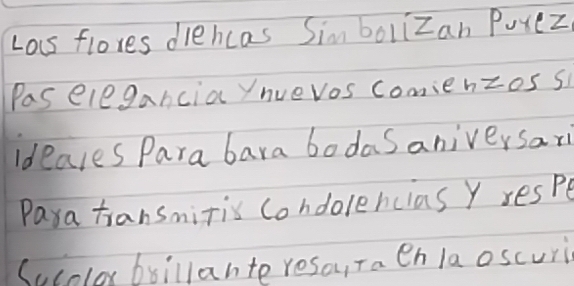 Las flores blencas Simbolizan Purez
Pas elegancia y nuevos comienzos si
ideales Para bara bodas aniversari
Para transmitir Condolencias y resPe
Sucolor brillante resalta en la oscuri